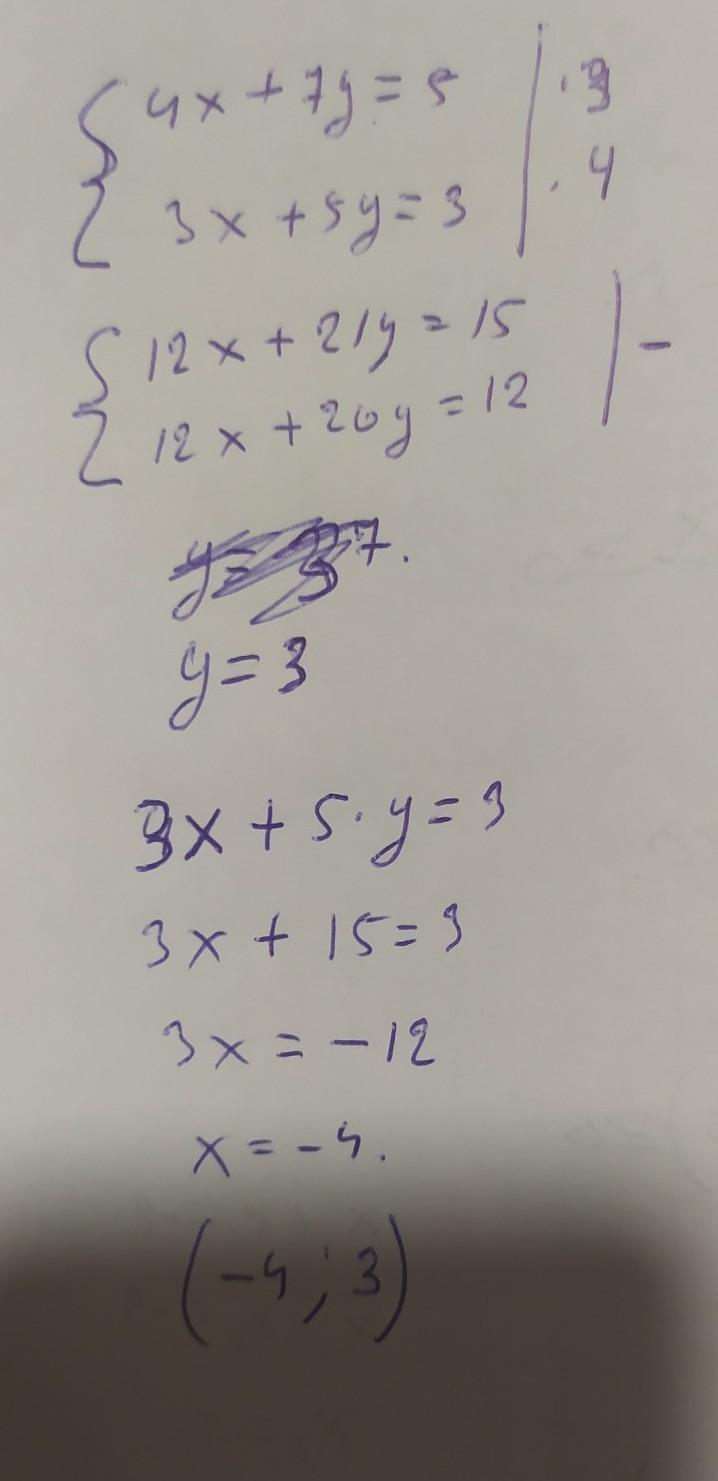 4x + 7y = 5 | · 3
3x + 5y = 3 | · 4
12x + 21y = 15 | -
12x + 20y = 12
y = 3
3x + 5 · y = 3
3x + 15 = 3
3x = -12
x = -4.
(-4 ; 3)